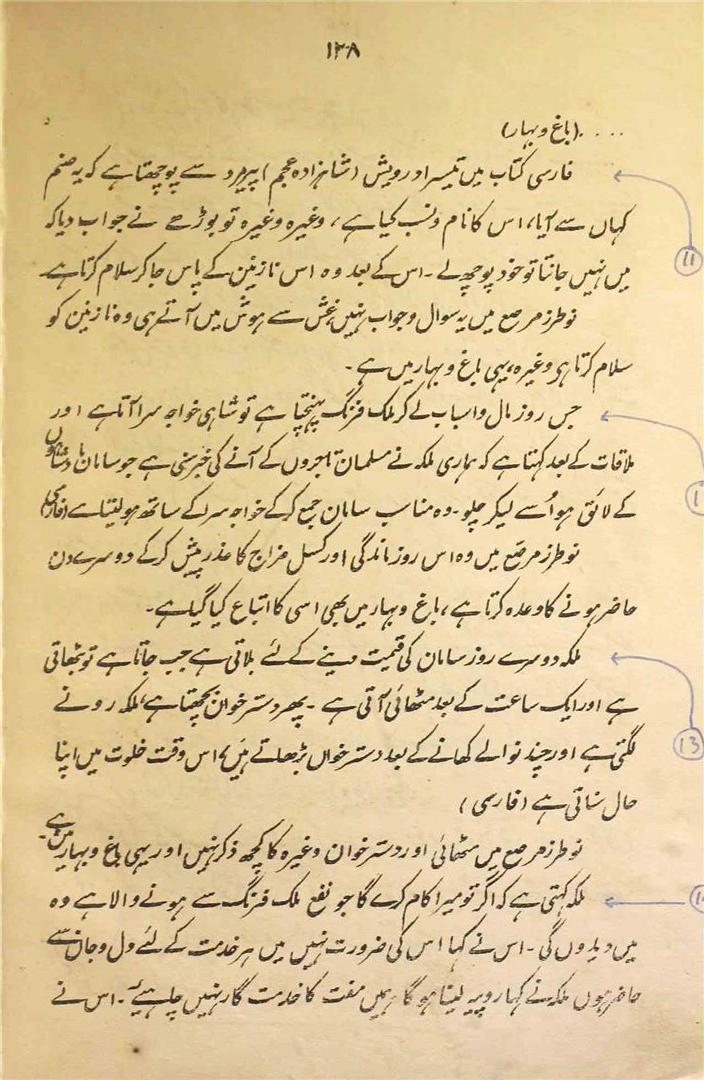 ۱۳۸
.... (باغ و بہار)
فارسی کتاب میں تیسرا درویش (شاہزادہ عجم) پیرمرد سے پوچھتا ہے کہ یہ صنم
کہاں سے آیا، اس کا نام و نسب کیا ہے، وغیرہ وغیرہ تو بوڑھے نے جواب دیا کہ
میں نہیں جانتا تو خود پوچھ لے ۔ اس کے بعد وہ اس نازنین کے پاس جا کر سلام کرتا ہے۔
11
نو طرز مرصع میں یہ سوال و جواب نہیں غش سے ہوش میں آتے ہی وہ نازنین کو
سلام کرتا ہے وغیرہ، یہی باغ و بہار میں ہے ۔
جس روز مال و اسباب لے کر ملک فرنگ پہنچتا ہے تو شاہی خواجہ سرا آتا ہے اور
ملاقات کے بعد کہتا ہے کہ ہماری ملکہ نے مسلمان تاجروں کے آنے کی خبر سنی ہے جو سامان بادشاہوں
1
کے لائق ہو اُسے لیکر چلو ۔ وہ مناسب سامان جمع کر کے خواجہ سرا کے ساتھ ہو لیتا ہے (فارسی)
نو طرز مرصع میں وہ اس روز ماندگی اور کسل مزاج کا عذر پیش کر کے دوسرے دن
حاضر ہونے کا وعدہ کرتا ہے، باغ و بہار میں بھی اسی کا اتباع کیا گیا ہے۔
ملکہ دوسرے روز سامان کی قیمت دینے کے لئے بلاتی ہے جب جاتا ہے تو بٹھاتی
ہے اور ایک ساعت کے بعد مٹھائی آتی ہے ۔ پھر دسترخوان بچھتا ہے، ملکہ رونے
لگتی ہے اور چند نوالے کھانے کے بعد دسترخواں بڑھاتے ہیں، اس وقت خلوت میں اپنا
13
حال سناتی ہے (فارسی)
نو طرز مرصع میں مٹھائی اور دسترخوان وغیرہ کا کچھ ذکر نہیں اور یہی باغ و بہار میں ہے۔
ملکہ کہتی ہے کہ اگر تو میرا کام کرے گا جو نفع ملک فرنگ سے ہونے والا ہے وہ
میں دیدوں گی ۔ اس نے کہا اس کی ضرورت نہیں میں ہر خدمت کے لئے دل و جان سے
حاضر ہوں ملکہ نے کہا روپیہ لینا ہوگا ہمیں مفت کا خدمت گار نہیں چاہیئے ۔ اس نے